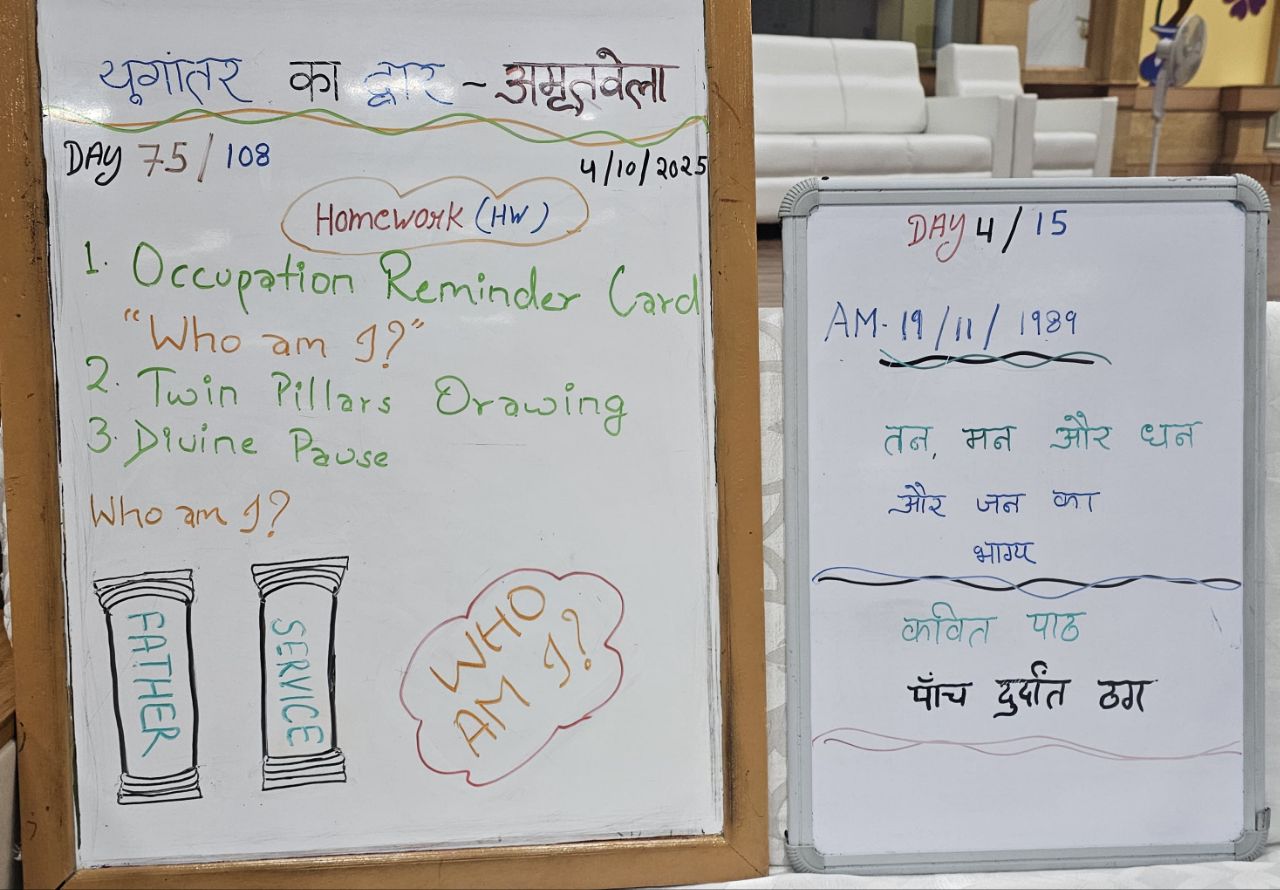 यूगांतर का द्वार - अमृतवेला
DAY 75/108
4/10/2025
Homework (HW)
1. Occupation Reminder Card
"Who am I?"
2. Twin Pillars Drawing
3. Divine Pause
Who am I?
FATHER
SERVICE
WHO
AM I?
DAY 4/15
AM- 19/11/1989
तन, मन और धन
और जन का
भाग्य
कवित पाठ
पाँच दुर्दांत ठग